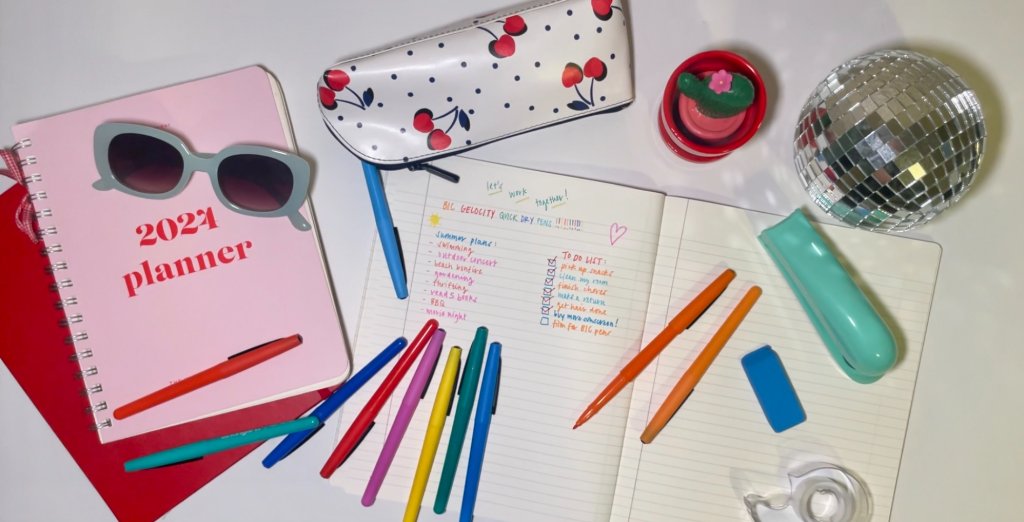 2024
planner
let's work together!
BIC GELOCITY QUICK DRY PENS
summer plans:
- swimming
- outdoor concert
- beach bonfire
- gardening
- thrifting
- read 5 books
- BBQ
- movie night
TO DO LIST:
pick up snacks
clean my room
finish chores
make a return
get hair done
buy more sunscreen!
film for BIC pens